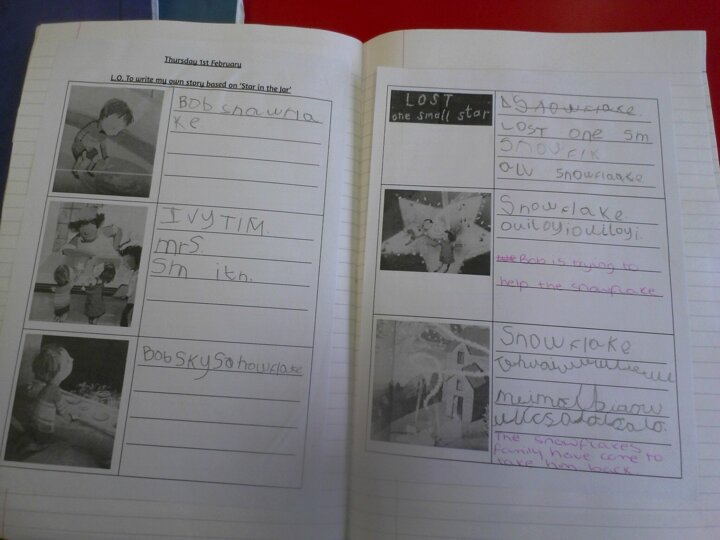 Thursday 1st February
L.O. To write my own story based on 'Star in the Jar'
Bob snowfla
ke
IVY TIM.
mrs.
Sm ith.
Bob sky Snowflake
LOST
one small star
Snowflake.
LOST one sm
Snowflk
all snowflaake
Snowflake.
ouiloyiouiloyi.
Bob is trying to
help the snowflake
Snowflake
The snowflakes
family have come to
take him back